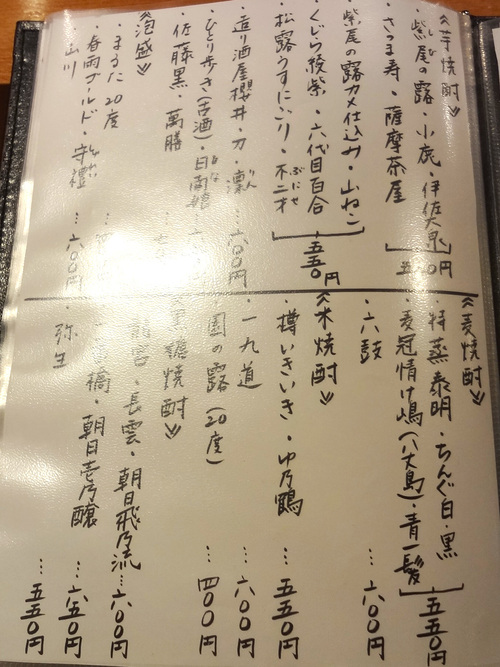 《芋焼酎》
・紫尾の露・小鹿・伊佐大泉
しび
・さつま寿・薩摩茶屋
五五〇円
・紫尾の露カメ仕込み・山ねこ
・くじら綾紫・六代目百合
・松露うすにごり・不二才
ぶにせ
五五〇円
・造り酒屋櫻井・刀・凛…六〇〇円
りん
・ひとり歩き(古酒)・日南娘
ひな
・佐藤黒・萬膳
《泡盛》
・まるた20度
・春雨ゴールド・守禮
・山川…六〇〇円
《麦焼酎》
・特蒸泰明・ちんぐ白・黒
・麦冠情け嶋(八丈島)・青一髪
五五〇円
・六鼓…六〇〇円
《米焼酎》
・樽いきいき・ゆ乃鶴…五五〇円
・一九道…六〇〇円
・園の露(20度)…四〇〇円
《黒糖焼酎》
・龍宮・長雲・朝日飛乃流…六〇〇円
橋・朝日壱乃醸…六五〇円
・弥生…五五〇円